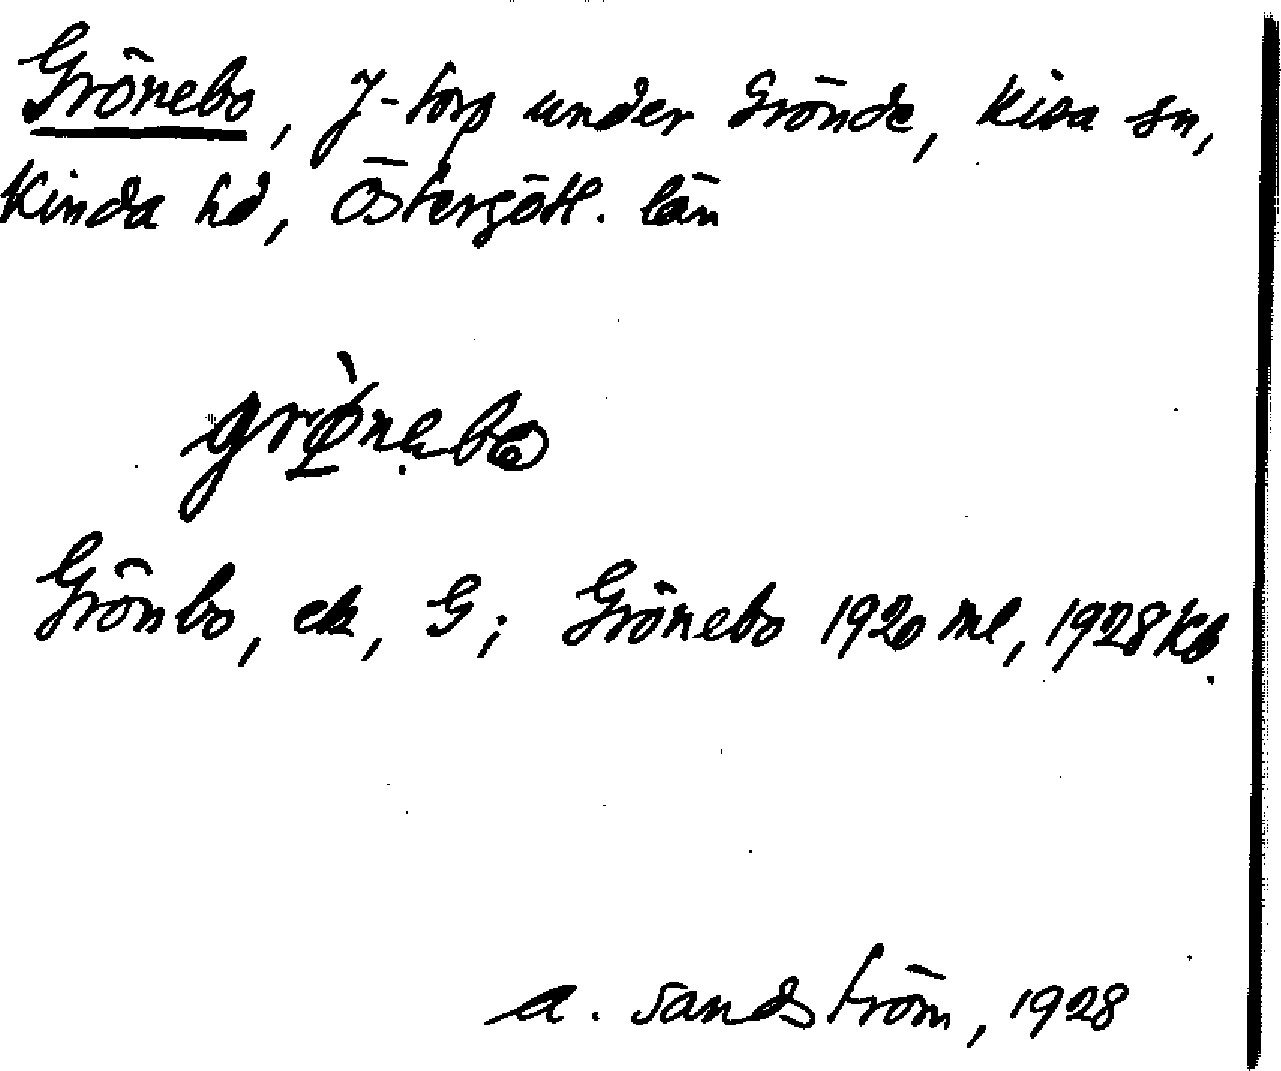 Grönebo, J-torp under Grönde, Kisa sn,
Kinda hd, Östergötl. län
grø̀nebω
Grönbo, ek, G; Grönebo 1920 ml, 1928 Kb.
A. Sandström, 1928